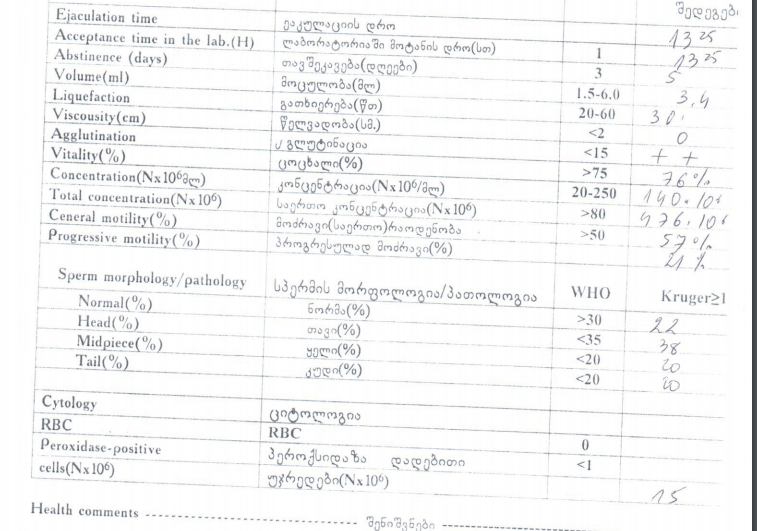 შედეგები
Ejaculation time ეაკულაციის დრო 13 25
Acceptance time in the lab.(H) ლაბორატორიაში მოტანის დრო(სთ) 1 13 25
Abstinence (days) თავშეკავება(დღეები) 3 5
Volume(ml) მოცულობა(მლ) 1.5-6.0 3,4
Liquefaction გათხიერება(წთ) 20-60 30'
Viscousity(cm) წელვადობა(სმ.) <2 0
Agglutination აგლუტინაცია <15 + +
Vitality(%) ცოცხალი(%) >75 76%
Concentration(Nx10⁶მლ) კონცენტრაცია(Nx10⁶/მლ) 20-250 140.10⁶
Total concentration(Nx10⁶) საერთო კონცენტრაცია(Nx10⁶) >80 476.10⁶
Ceneral motility(%) მოძრავი(საერთო)რაოდენობა >50 57%
Progressive motility(%) პროგრესულად მოძრავი(%) 21%
Sperm morphology/pathology სპერმის მორფოლოგია/პათოლოგია WHO Kruger≥1
Normal(%) ნორმა(%) >30 22
Head(%) თავი(%) <35 38
Midpiece(%) ყელი(%) <20 20
Tail(%) კუდი(%) <20 20
Cytology ციტოლოგია
RBC RBC 0
Peroxidase-positive პეროქსიდაზა დადებითი <1
cells(Nx10⁶) უჯრედები(Nx10⁶) 15
Health comments შენიშვნები